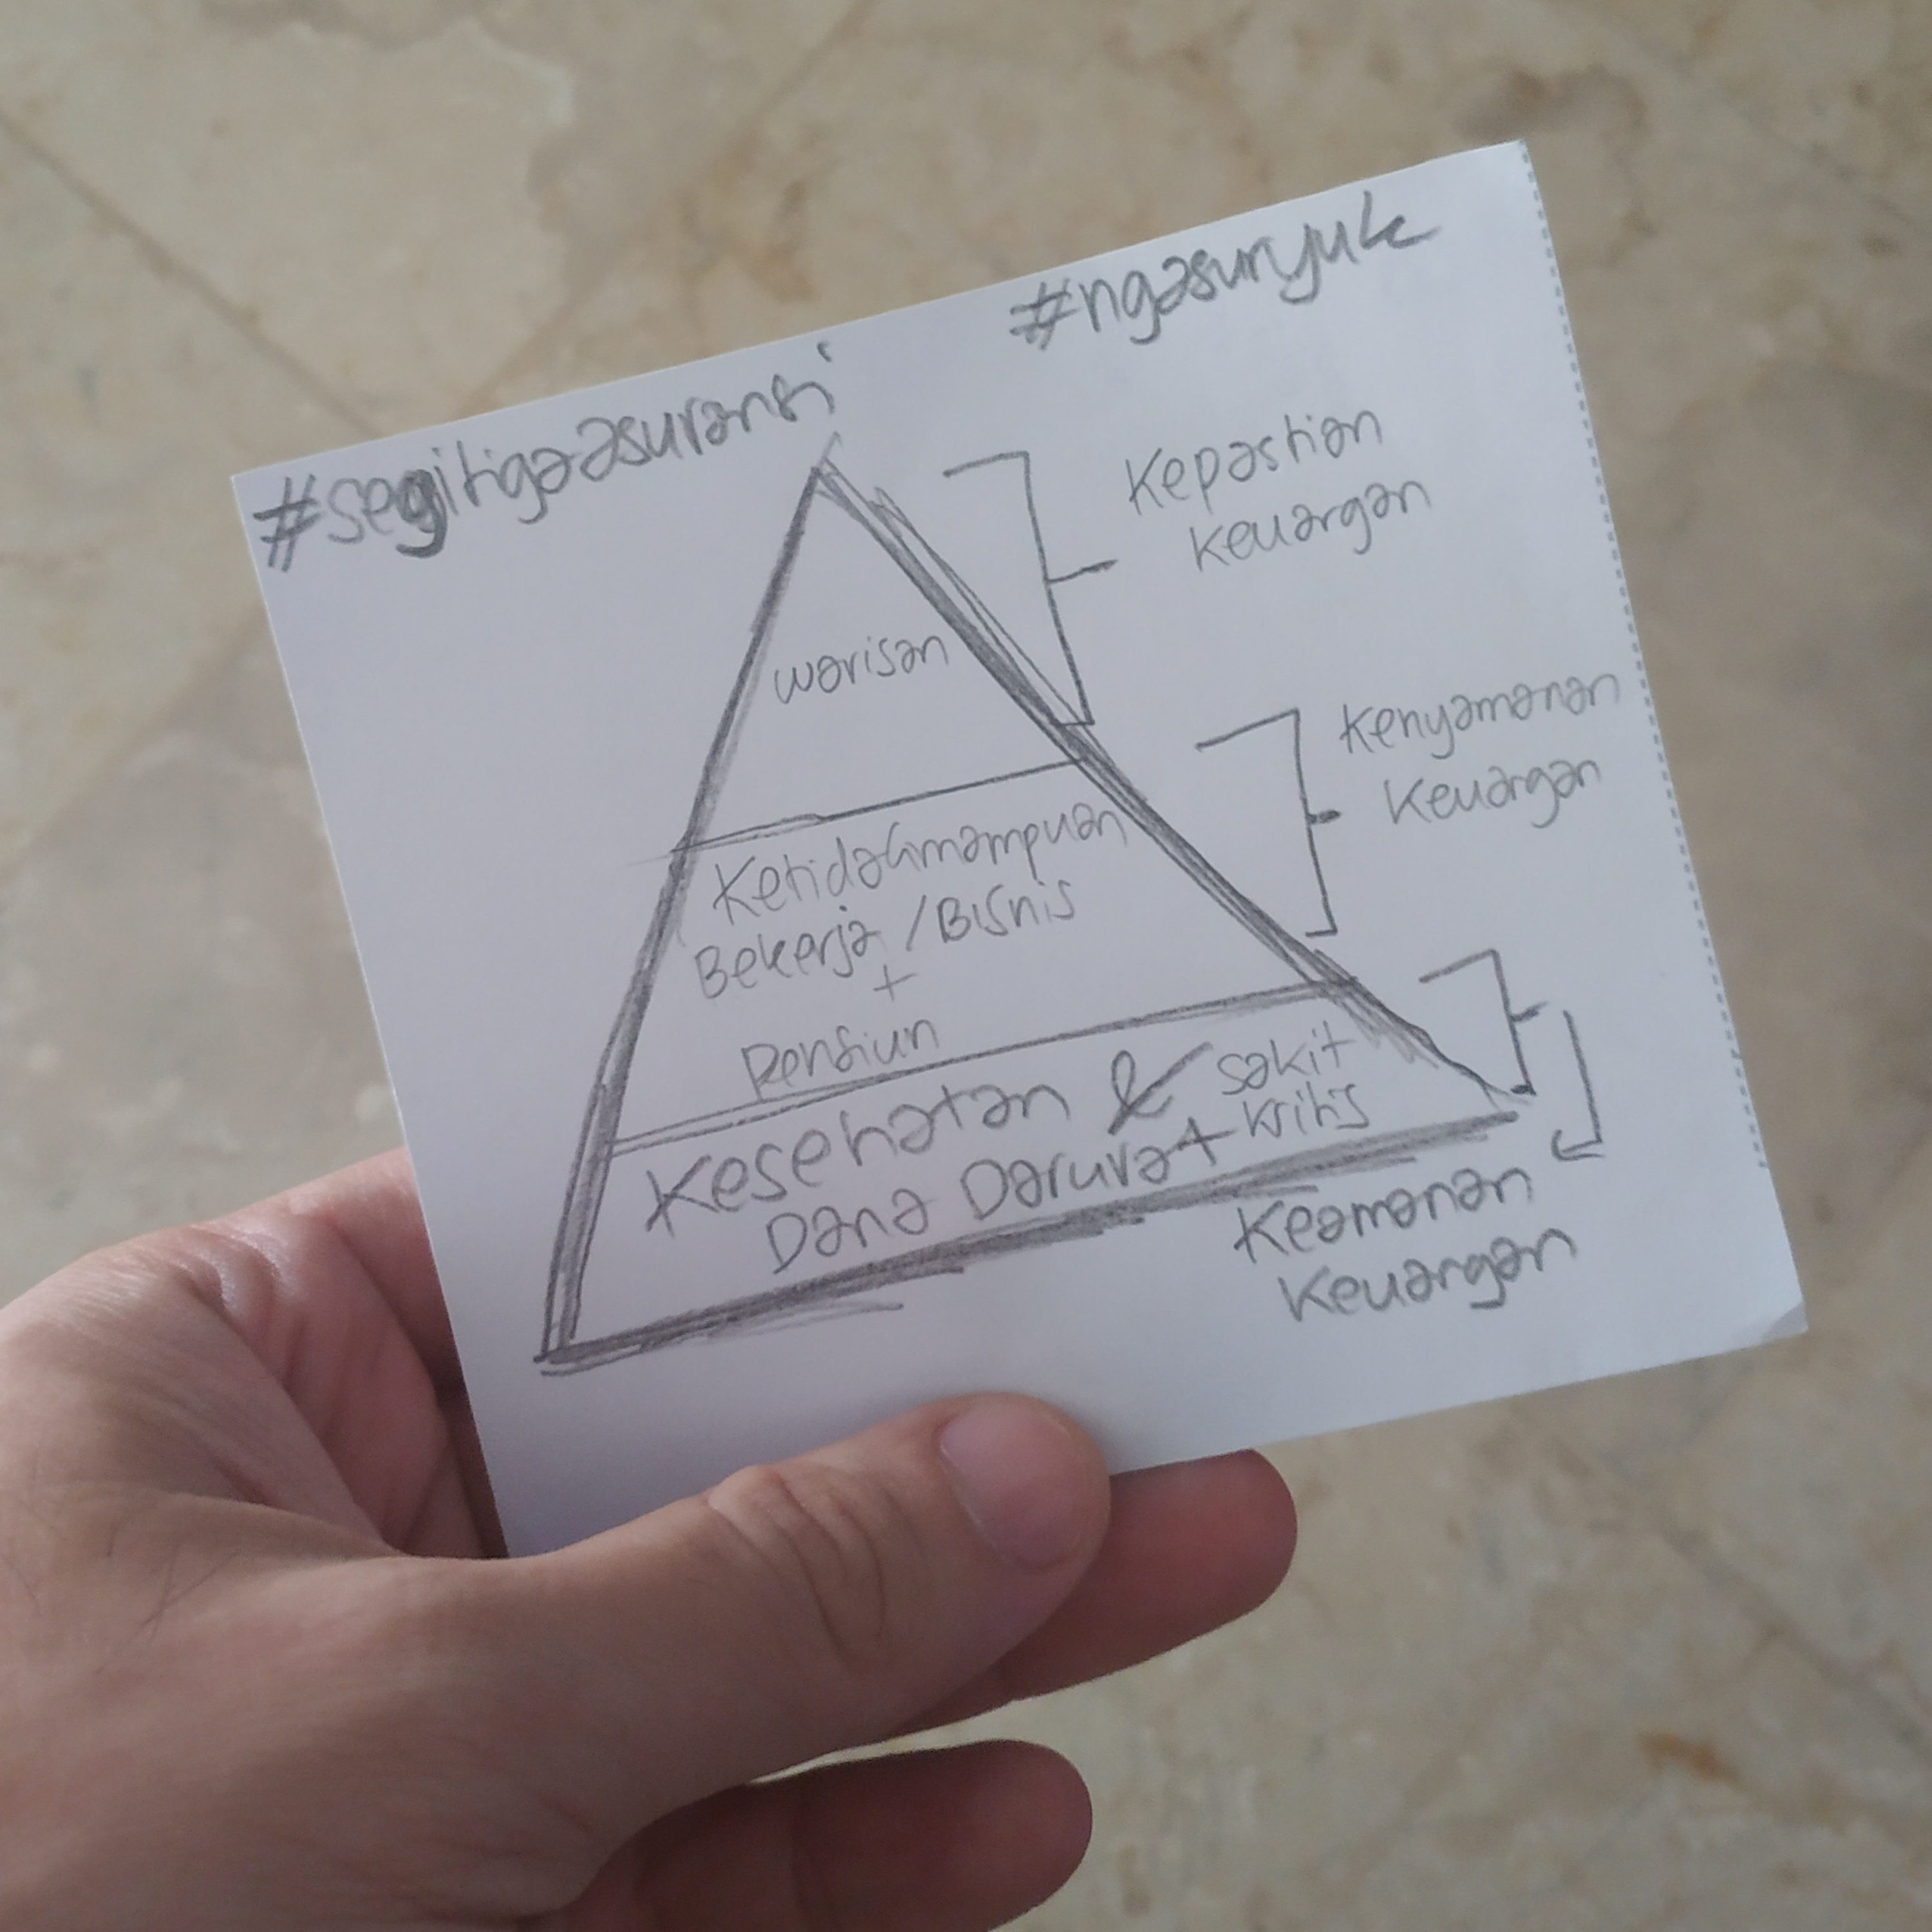 #segitigaasuransi
#ngasuryuk
Kepastian
Keuangan
warisan
Kenyamanan
Keuangan
Ketidakmampuan
Bekerja/Bisnis
+
Pensiun
Kesehatan & sakit
kritis
Dana Darurat
Keamanan
Keuangan